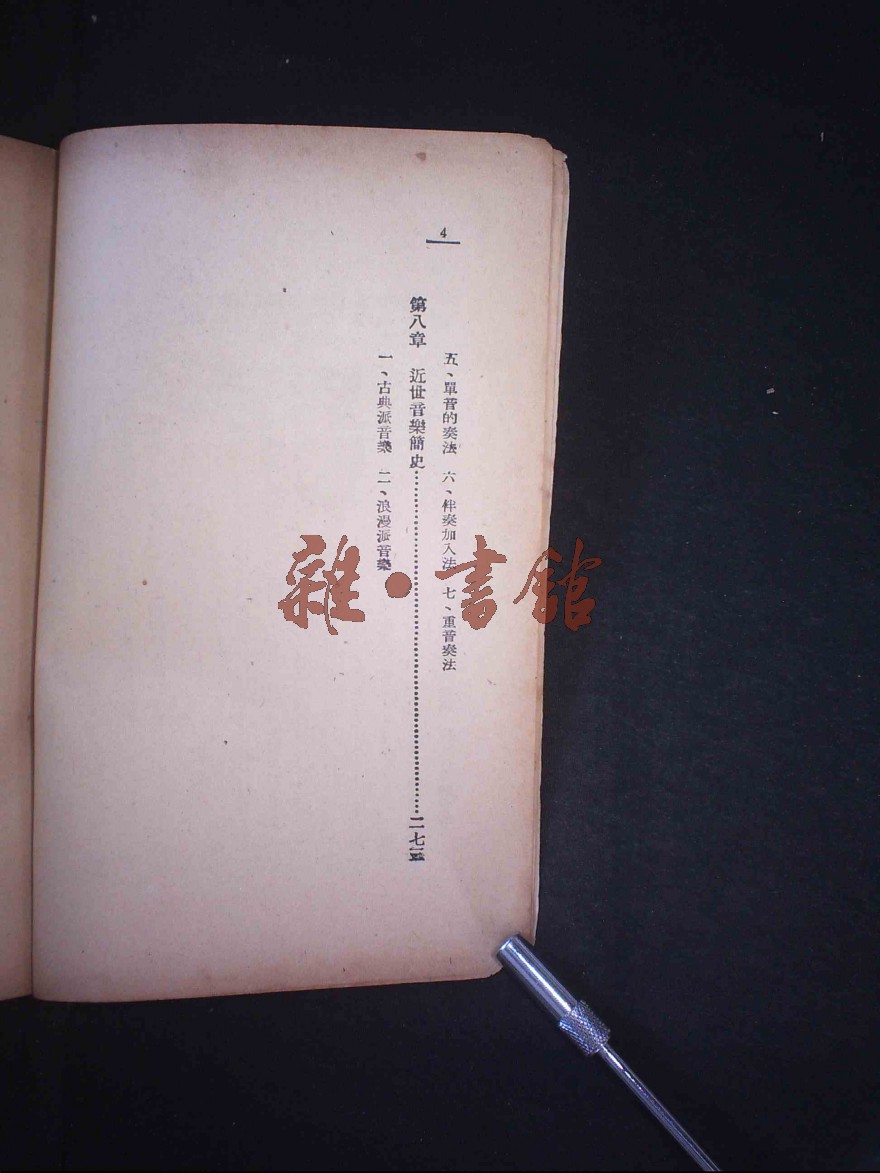 4
五、單音的奏法 六、伴奏加入法 七、重音奏法
第八章 近世音樂簡史……二七三
一、古典派音樂 二、浪漫派音樂
雜·書館